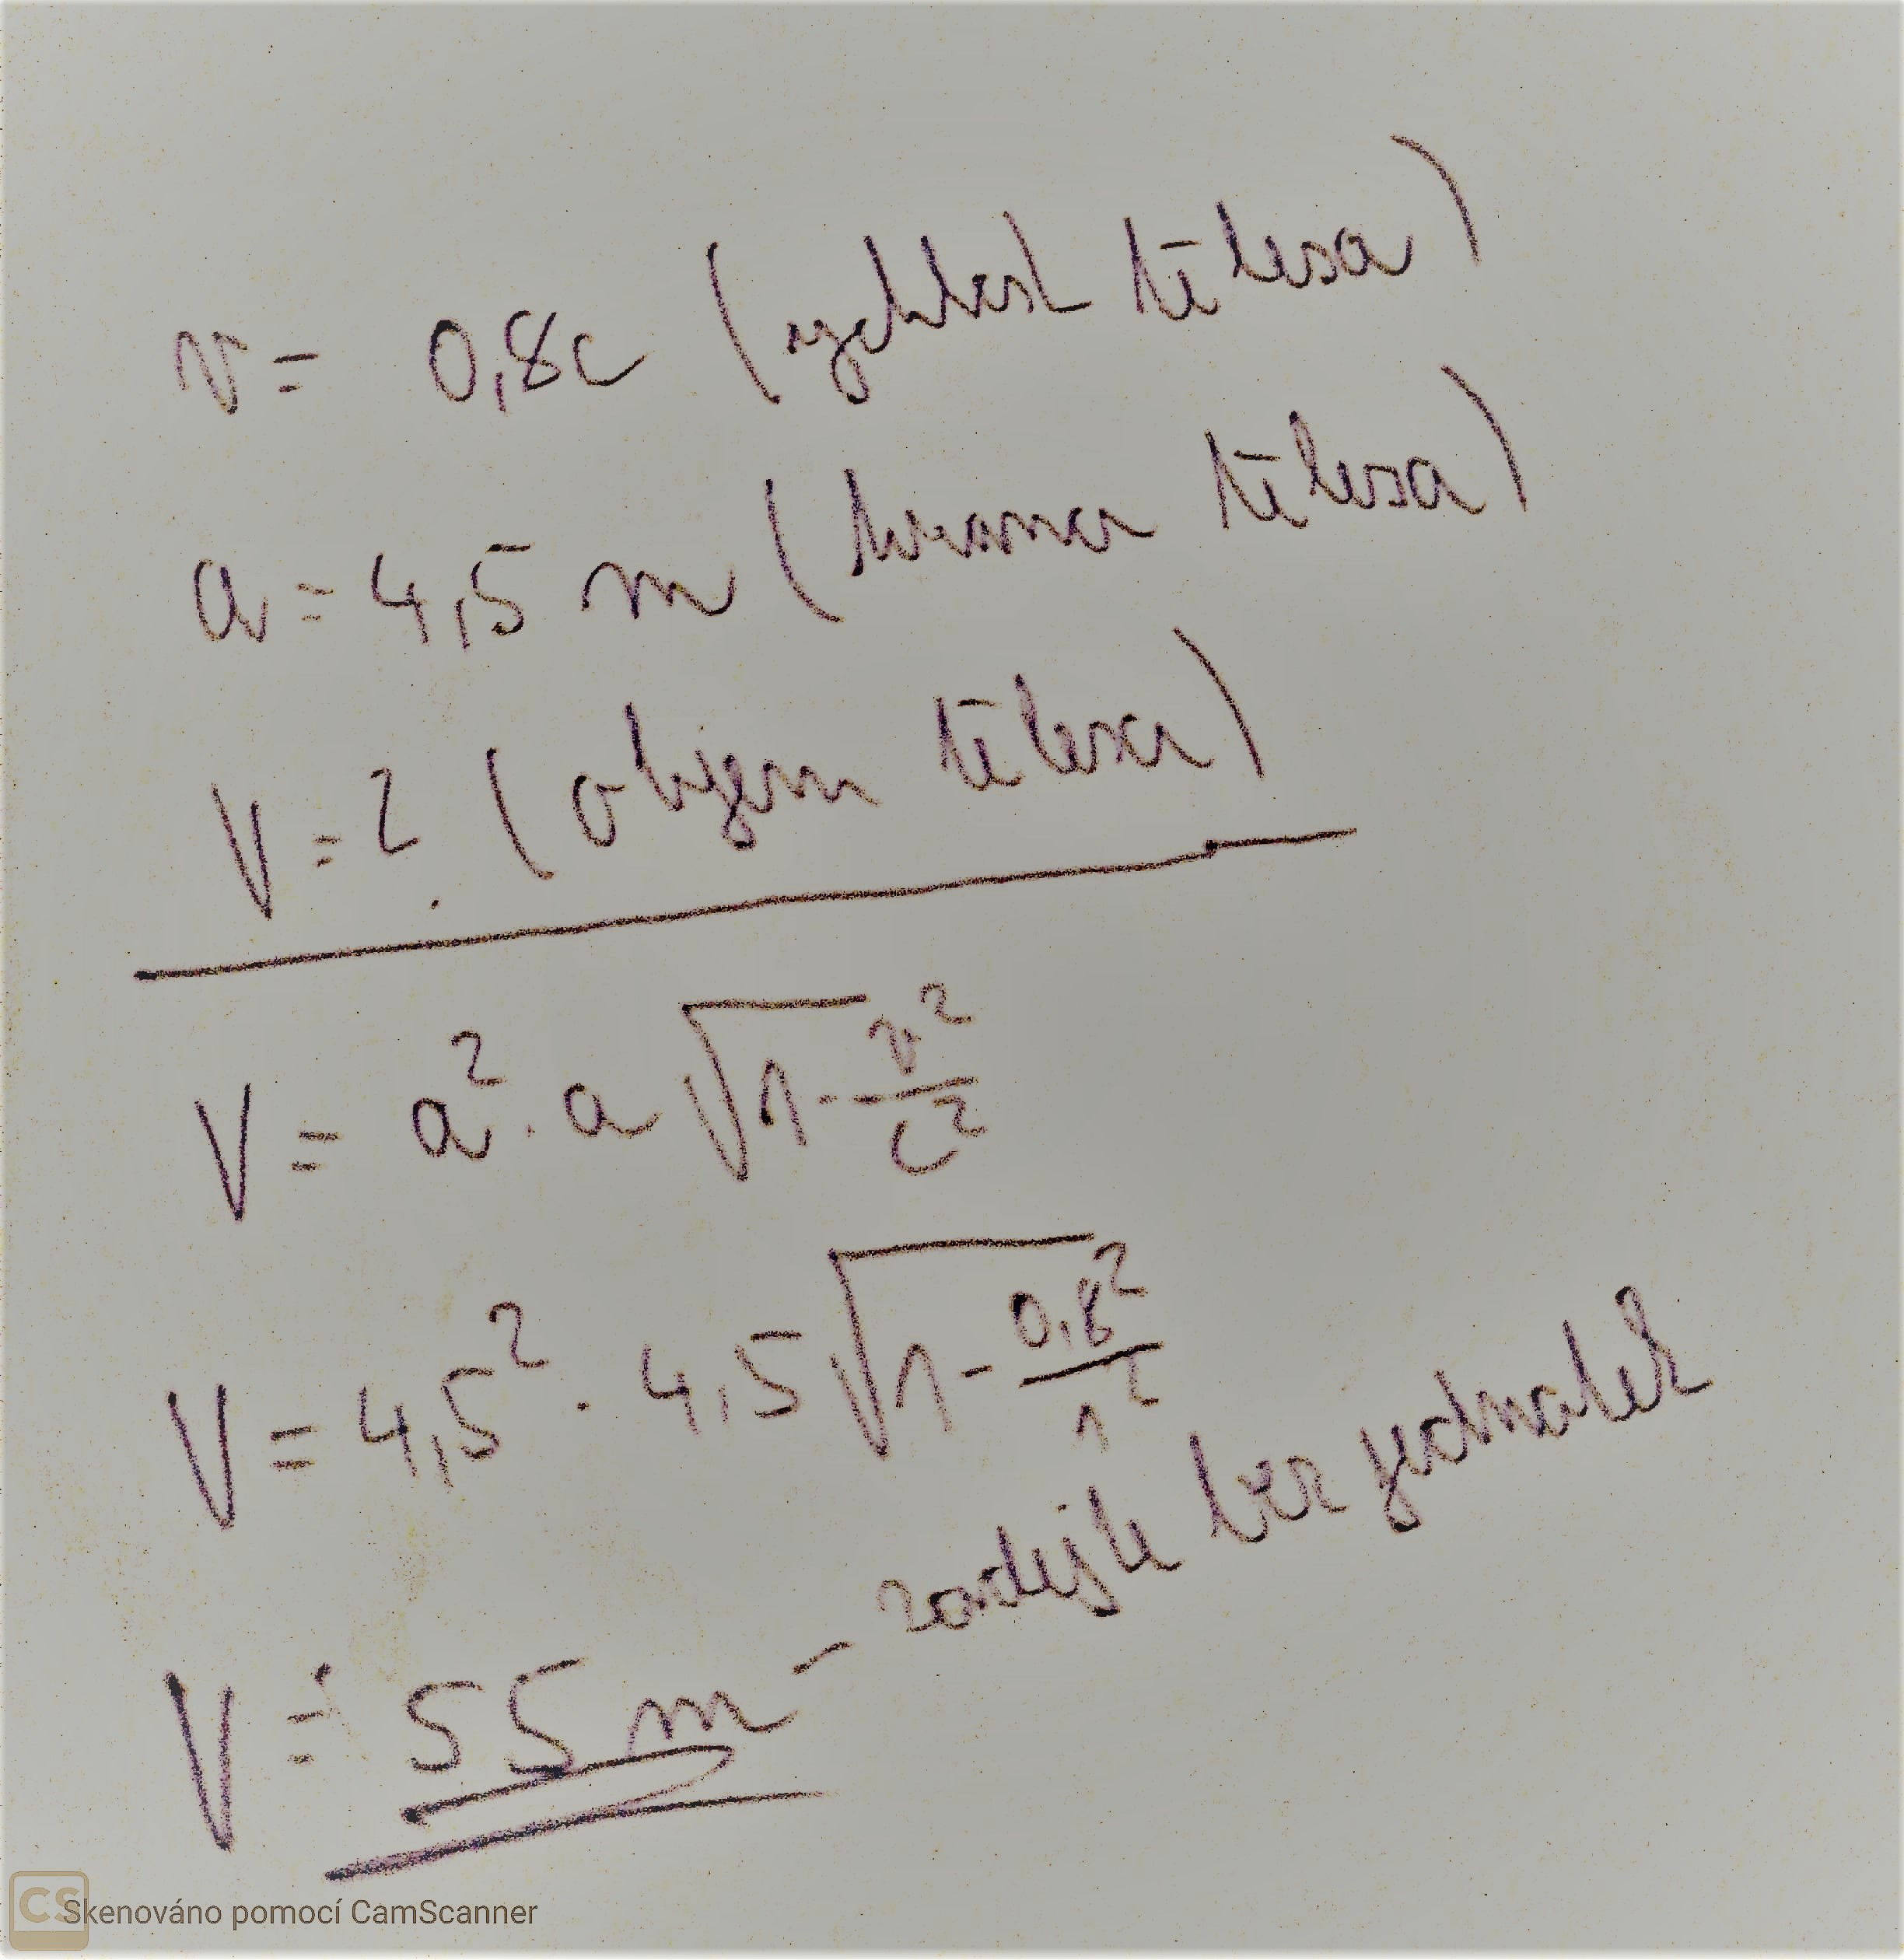 v = 0,8c (rychlost tělesa)
a = 4,5 m (hrana tělesa)
V = ? (objem tělesa)
V = a² · a √1 - v²/c²
V = 4,5² · 4,5 √1 - 0,8²/1²
V ≐ 55 m - zadejte bez jednotek
CS Skenováno pomocí CamScanner